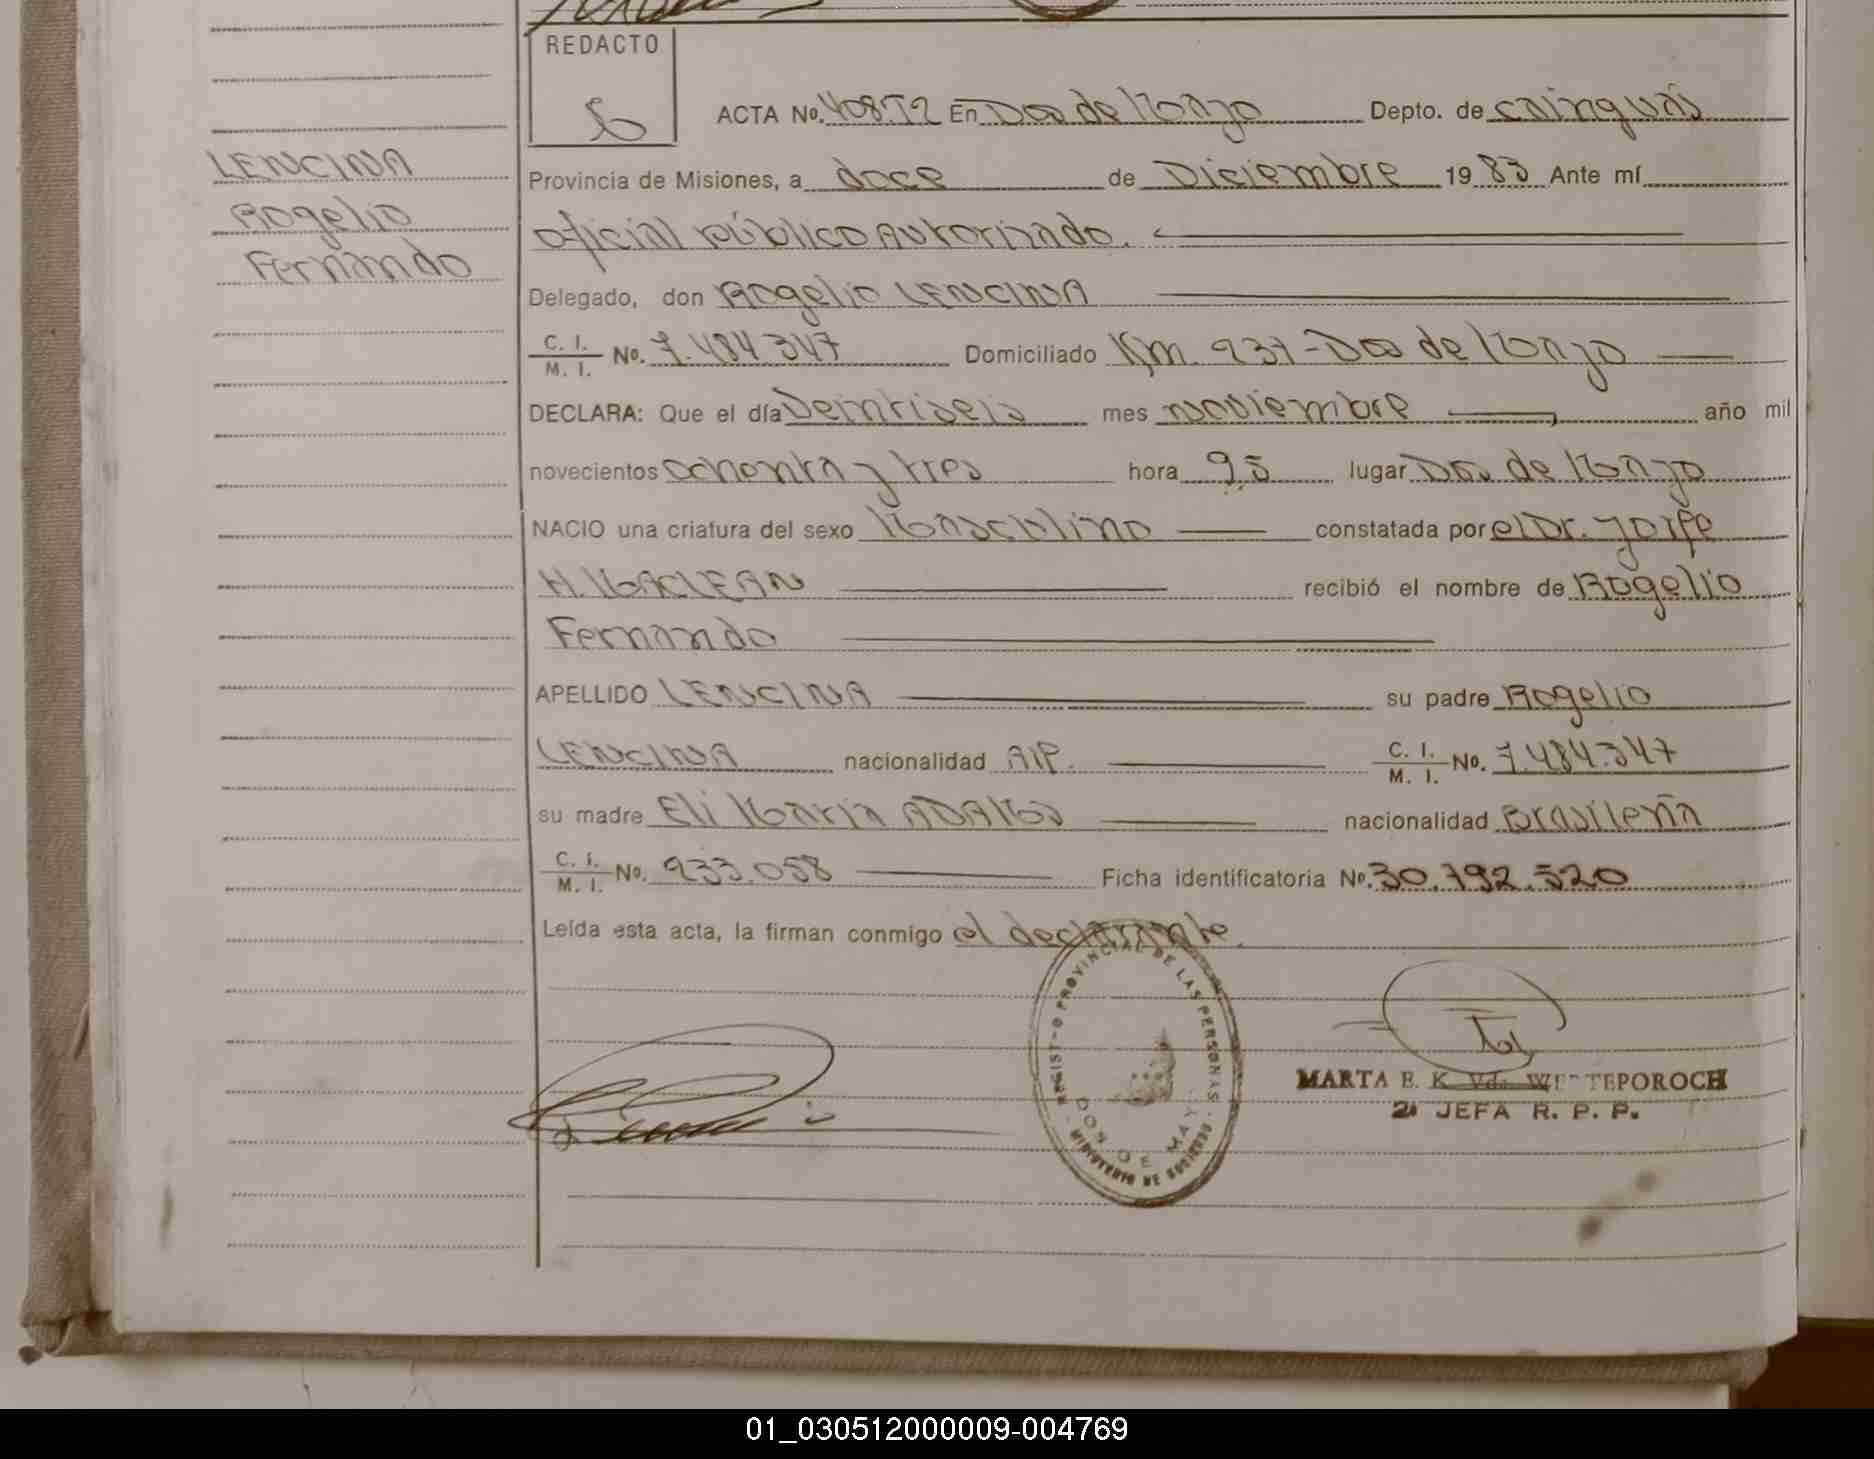 REDACTO
ACTA No. 408 T2 En Dos de Mayo Depto. de Cainguás
LENCINA
Provincia de Misiones, a doce de Diciembre 1983 Ante mí
Rogelio
oficial público Autorizado.
Fernando
Delegado, don Rogelio LENCINA
C. I.
M. I. No. 7.484.347 Domiciliado Km. 237-Dos de Mayo
DECLARA: Que el día Veintiseis mes noviembre año mil
novecientos ochenta y tres hora 9,5 lugar Dos de Mayo
NACIO una criatura del sexo Masculino constatada por el Dr. Jorge
H. MACLEAN recibió el nombre de Rogelio
Fernando
APELLIDO LENCINA su padre Rogelio
LENCINA nacionalidad Arg. C. I.
M. I. No. 7.484.347
su madre Eli María nacionalidad Brasileña
C. I.
M. I. No. 233.058 Ficha identificatoria No. 30.792.520
Leída esta acta, la firman conmigo el declarante.
PROVINCIAL DE LAS PERSONAS
DOS DE MAYO
MARTA E. K. Vda.
2a JEFA R. P. P.
01_030512000009-004769